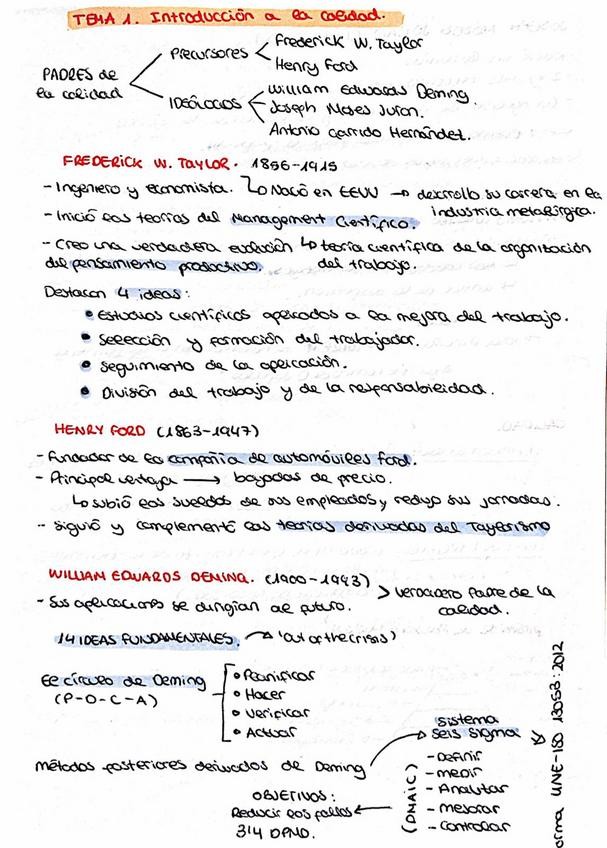 TEMA 1. Introducción a la calidad.
PADRES de la calidad
Precursores
Frederick W. Taylor
Henry Ford
IDEÓLOGOS
William Edwards Deming.
Joseph Moses Juran.
Antonio Garrido Hernández.
FREDERICK W. TAYLOR. 1856-1915
- Ingeniero y economista. ↳ Nació en EEUU → desarrollo su carrera en la industria metalúrgica.
- Inició las teorías del Management Científico.
- Creo una verdadera evolución ↳ teoría científica de la organización
del pensamiento productivo. del trabajo.
Destacan 4 ideas:
• Estudios científicos aplicados a la mejora del trabajo.
• Selección y formación del trabajador.
• Seguimiento de la aplicación.
• División del trabajo y de la responsabilidad.
HENRY FORD (1863-1947)
- Fundador de la compañía de automóviles Ford.
- Principal ventaja → bajadas de precio.
↳ subió los sueldos de sus empleados y redujo sus jornadas.
- Siguió y complementó las teorías derivadas del Taylerismo
WILLIAM EDWARDS DEMING. (1900-1993) > verdadero Padre de la calidad.
- Sus aplicaciones se dirigían al futuro.
14 IDEAS FUNDAMENTALES. → 'out of the crisis)
El círculo de Deming
(P-D-C-A)
• Planificar
• Hacer
• Verificar
• Actuar
métodos posteriores derivados de Deming
sistema
seis sigma
(DMAIC)
- Definir
- medir
- Analizar
- mejorar
- controlar
OBJETIVOS:
Reducir los fallos
3'4 DPMO.
orma UNE-ISO 13053:2012